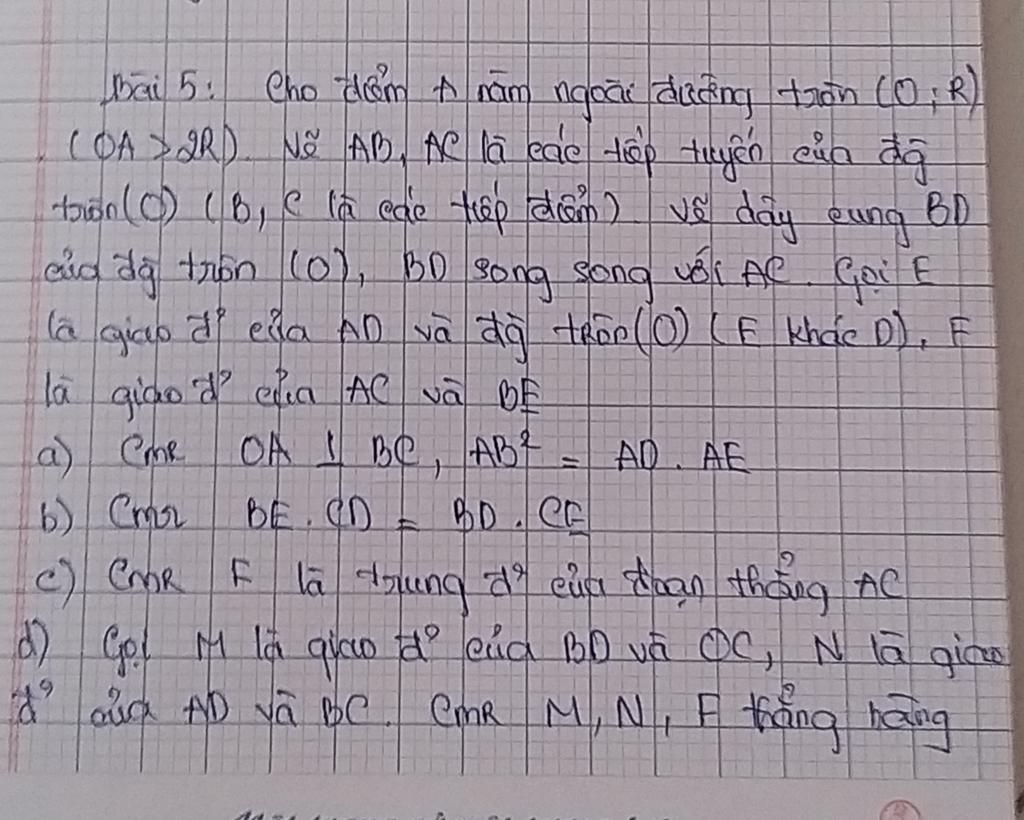 Bài 5: Cho điểm A nằm ngoài đường tròn (O; R)
(OA > 2R). Vẽ AB, AC là các tiếp tuyến của đg
tròn (O) (B, C là các tiếp điểm). Vẽ dây cung BD
của đg tròn (O), BD song song với AC. Gọi E
là giao đ' của AD và đg tròn (O) (E khác D), F
là giao đ' của AC và BE
a) CmR OA ⊥ BC, AB² = AD . AE
b) Cmr BE . CD = BD . CE
c) CmR F là trung đ' của đoạn thẳng AC
d) Gọi M là giao đ' của BD và OC, N là giao
đ' của AD và BC. CmR M, N, F thẳng hàng